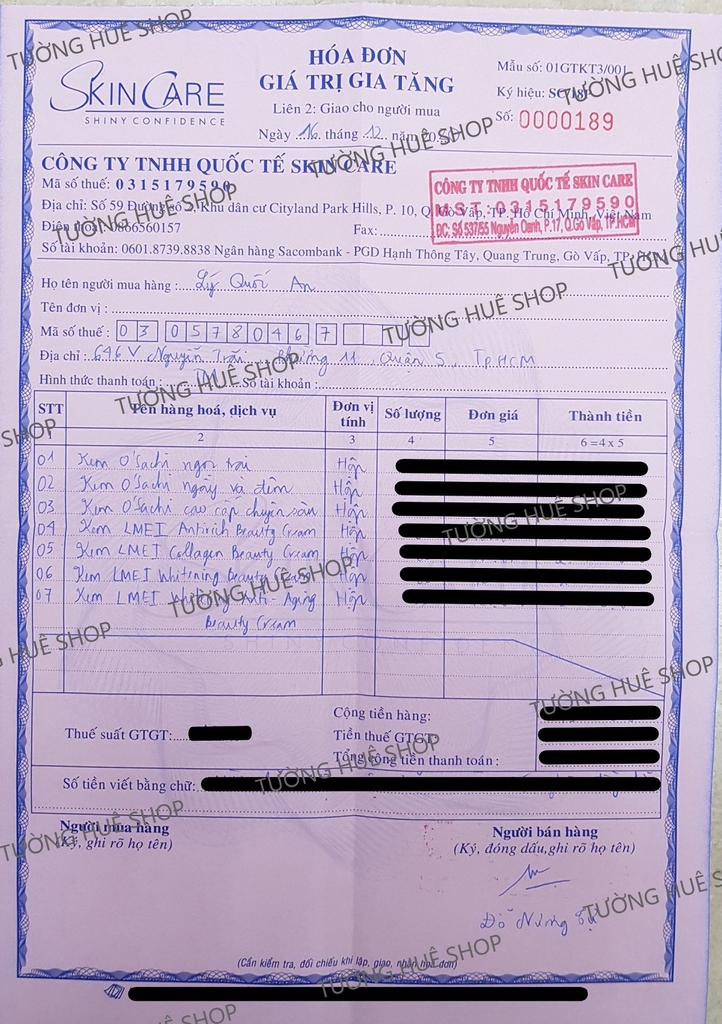 HÓA ĐƠN
GIÁ TRỊ GIA TĂNG
Liên 2: Giao cho người mua
Ngày 16 tháng 12 năm 20
SKINCARE
SHINY CONFIDENCE
Mẫu số: 01GTKT3/001
Ký hiệu:
Số: 0000189
CÔNG TY TNHH QUỐC TẾ SKIN CARE
Mã số thuế: 0315179590
Địa chỉ: Số 59 Đường số 3, Khu dân cư Cityland Park Hills, P. 10, Q. Gò Vấp, TP. Hồ Chí Minh, Việt Nam
Điện thoại: 0866560157 Fax:
Số tài khoản: 0601.8739.8838 Ngân hàng Sacombank - PGD Hạnh Thông Tây, Quang Trung, Gò Vấp, TP.
CÔNG TY TNHH QUỐC TẾ SKIN CARE
M.S.T : 0315179590
ĐC: Số 537/55 Nguyễn Oanh, P.17, Q.Gò Vấp, TP.HCM
Họ tên người mua hàng : Lý Quốc An
Tên đơn vị :
Mã số thuế : 03 0578046 7
Địa chỉ : 646 V Nguyễn Trãi, Phường 11, Quận 5, TP HCM
Hình thức thanh toán : TM Số tài khoản :
STT Tên hàng hoá, dịch vụ Đơn vị tính Số lượng Đơn giá Thành tiền
2 3 4 5 6 = 4 x 5
01 Kem O'Sachi ngọc trai Hộp
02 Kem O'Sachi ngày và đêm Hộp
03 Kem O'Sachi cao cấp chuyên sâu Hộp
04 Kem LMEI Antirich Beauty Cream Hộp
05 Kem LMEI Collagen Beauty Cream Hộp
06 Kem LMEI Whitening Beauty Cream Hộp
07 Kem LMEI Anti - Aging Hộp
Beauty Cream
Thuế suất GTGT:
Cộng tiền hàng:
Tiền thuế GTGT:
Tổng cộng tiền thanh toán :
Số tiền viết bằng chữ:
Người mua hàng
(Ký, ghi rõ họ tên)
Người bán hàng
(Ký, đóng dấu,ghi rõ họ tên)
(Cần kiểm tra, đối chiếu khi lập, giao, nhận hóa đơn)
TƯỜNG HUÊ SHOP
TƯỜNG HUÊ SHOP
TƯỜNG HUÊ SHOP
TƯỜNG HUÊ SHOP
TƯỜNG HUÊ SHOP
TƯỜNG HUÊ SHOP
TƯỜNG HUÊ SHOP
SHOP
TƯỜNG HUÊ SHOP
TƯỜNG HUÊ SHOP
HUÊ SHOP
TƯỜNG HUÊ SHOP
TƯỜNG HUÊ SHOP
TƯỜNG HUÊ SHOP
TƯỜNG HUÊ SHOP
TƯỜNG HUÊ SHOP
HUÊ SHOP